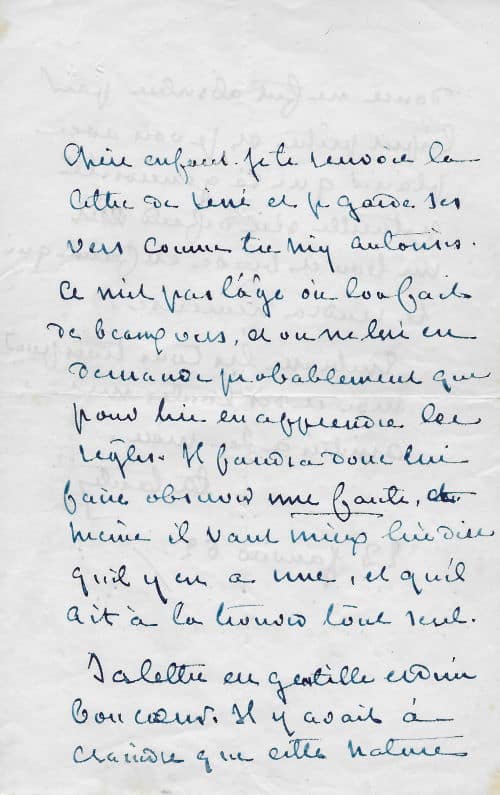 Chère enfant. Je te renvoie la
lettre de René et je garde ses
vers comme tu m'y autorises.
Ce n'est pas l'âge où l'on fait
de beaux vers, et on ne lui en
demande probablement que
pour lui en apprendre les
règles. Il faudra donc lui
faire observer une faute, et
même il vaut mieux lui dire
qu'il y en a une, et qu'il
ait à la trouver tout seul.
Sa lettre est gentille et d'un
bon cœur. Il y avait à
craindre que cette nature